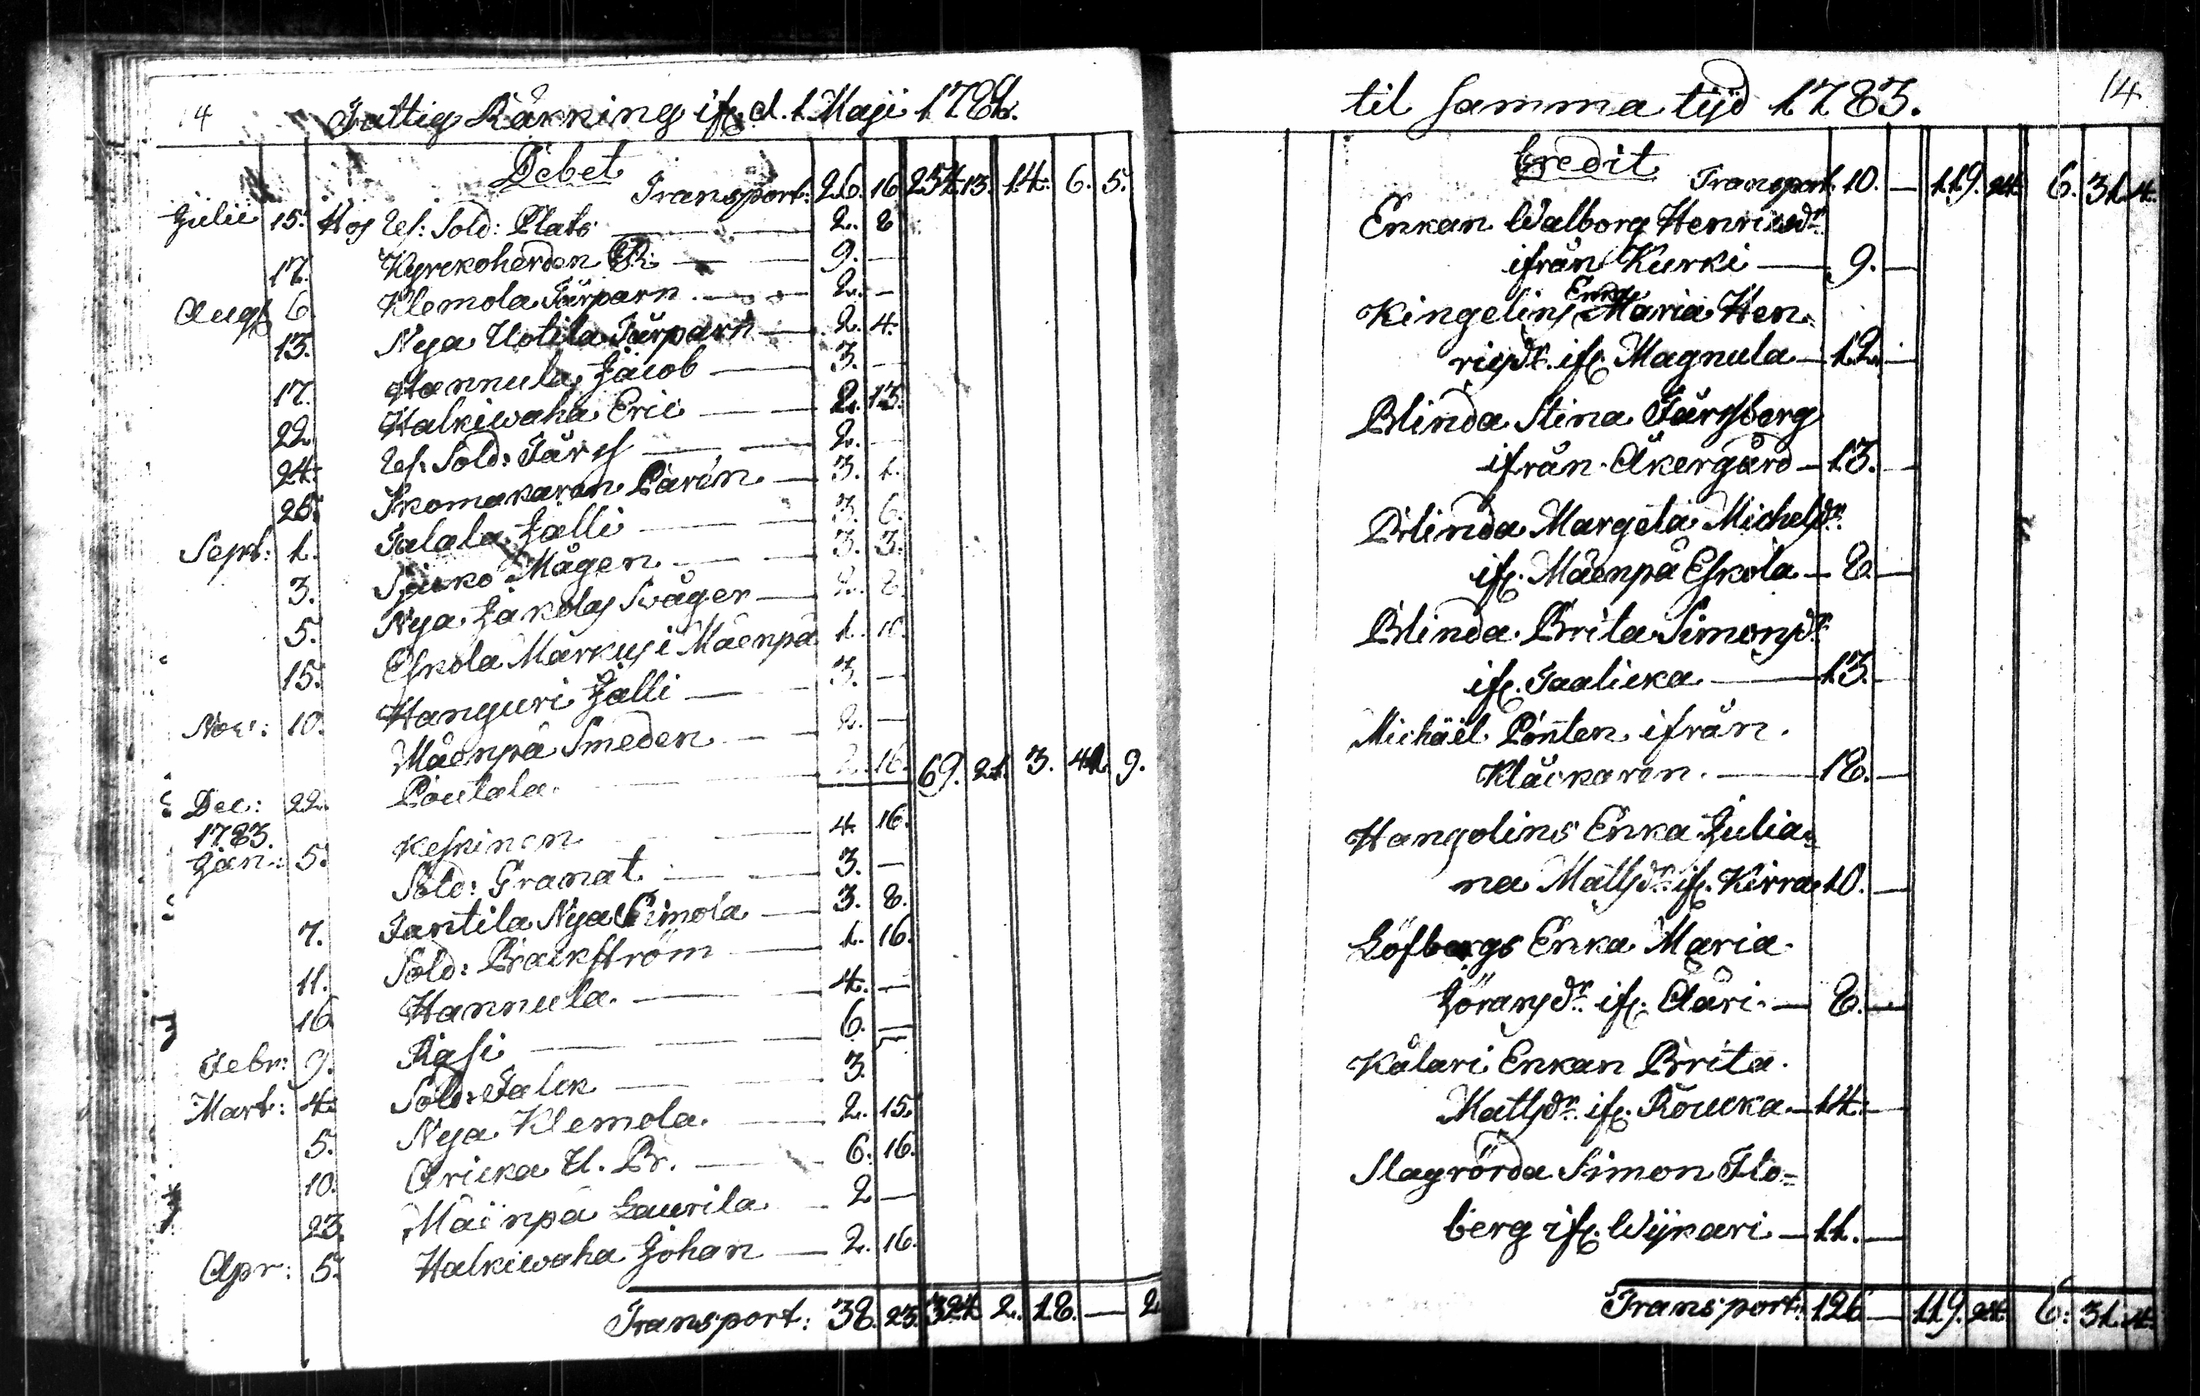 14 Fattig Räkning ifr. d. 1 Maji 1782.
Debet
Transport: 26. 16. 254. 13. 14. 6. 5.
Julii 15. Hos Res: Sold: Plato — 2. 8
17. Kyrckoherden — 9. —
Aug. 6. Klemola Torparn — 2. —
13. Nya Uotila Torparn — 2. 4.
17. Hannula Jacob — 3. —
22. Halkiwaha Eric — 2. 13.
24. Res: Sold: Färs — 2. —
26. Skomakaren Parén — 3. 1.
Sept: 1. Talala Jalli — 3. 6.
3. Sjäko Mågen — 3. 3.
5. Nya Jakolas Swåger — 2. 8.
15. Eskola Markus i Mäenpä 1. 10.
Nov: 10. Hanguri Jalli — 3. —
Mäenpä Smeden — 2. —
Dec: 22. Poutala — 2. 16. 69. 21. 3. 42. 9.
1783.
Jan: 5. Keskinen — 4. 16.
Sold: Granat — 3. —
7. Jantila Nya Simola — 3. 8.
11. Sold: Brackström — 1. 16.
16 Hannula — 4. —
Febr: 9. Rasi — 6. —
Mart: 4. Sold: Falck — 3.
5. Nya Klemola — 2. 15.
10. Aricka U. Br. — 6. 16.
23. Mäenpä Laurila — 2 —
Apr: 5. Halkiwaha Johan — 2. 16.
Transport: 38. 23. 324. 2. 18. — 2
til samma tijd 1783. 14
Credit
Transport 10. — 119. 24. 6. 31. 4.
Enkan Walborg Henricsdr.
ifrån Kurki — 9. —
Enka
Kingelins Maria Hen-
ricsdr. ifr. Magnula — 12. —
Blinda Stina Färsberg
ifrån Åkergård — 13. —
Blinda Margeta Michelsdr.
ifr. Mäenpä Eskola — 8. —
Blinda Brita Simonsdr.
ifr. Taalicka — 13. —
Michäel Pontén ifrån
Kläckaren — 18. —
Hangolins Enka Julia=
na Mattsdr. ifr. Kirra 10. —
Löfbergs Enka Maria
Göransdr. ifr. Ääri — 8. —
Källari Enkan Brita
Mattsdr. ifr. Roucka — 14. —
Slagrörda Simon Flo=
berg ifr. Wijkari — 11. —
Transport: 126 — 119. 24. 6. 31. 4.